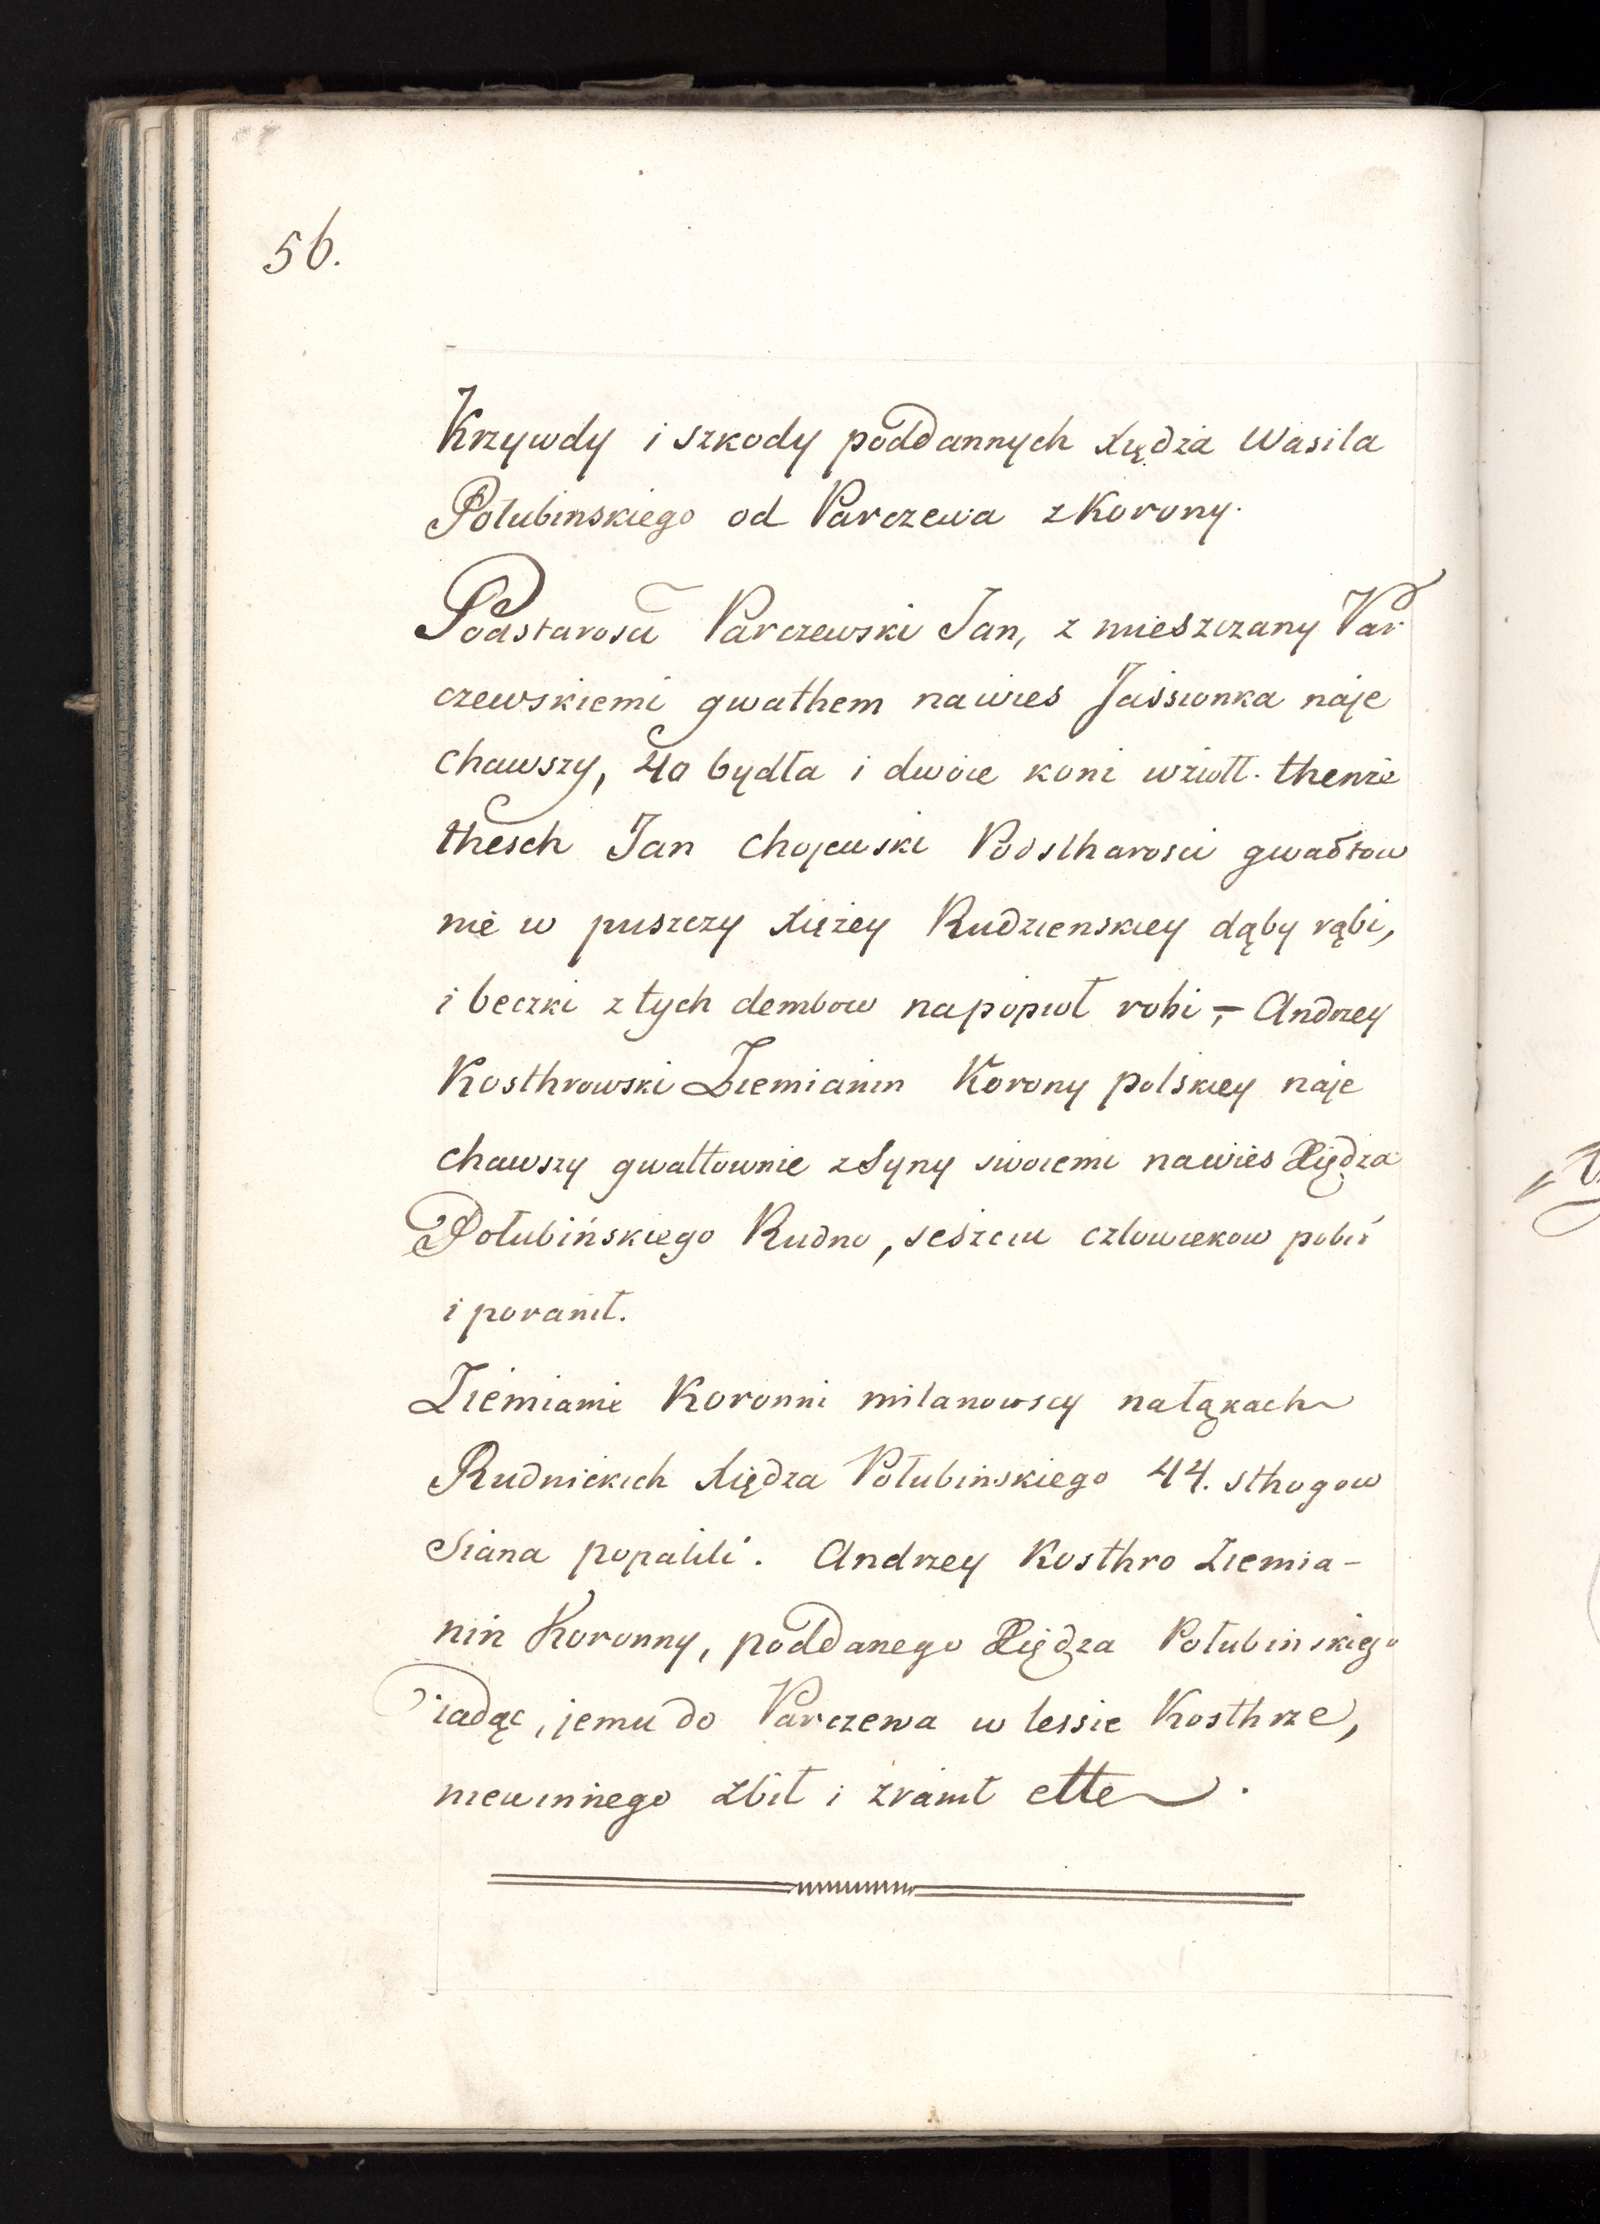 56.
Krzywdy i szkody poddannych Xiędza Wasila
Połubinskiego od Parczewa z Korony.
Podstarosci Parczewski Jan, z mieszczany Par
czewskiemi gwathem na wies Jassionka naje
chawszy, 40 bydła i dwoie koni wziołł. thenże
thesch Jan Chojewski Podstharosci gwałtow
nie w puszczy Xiężey Rudzienskiey dąby rąbi,
i beczki z tych dembow na popioł robi,– Andrzey
Kosthrowski Ziemianin Korony polskiey naje
chawszy gwałtownie z Syny swoiemi na wies Xiędza
Połubińskiego Rudno, sesciu człowiekow pobił
i poranił.
Ziemianie Koronni milanowscy na łąkach
Rudnickich Xiędza Połubinskiego 44. sthogow
Siana popalili. Andrzey Kosthro Ziemia-
nin Koronny, poddanego Xiędza Połubinskiego
iadąc, jemu do Parczewa w lessie Kosthrze,
niewinnego zbił i zranił ette.